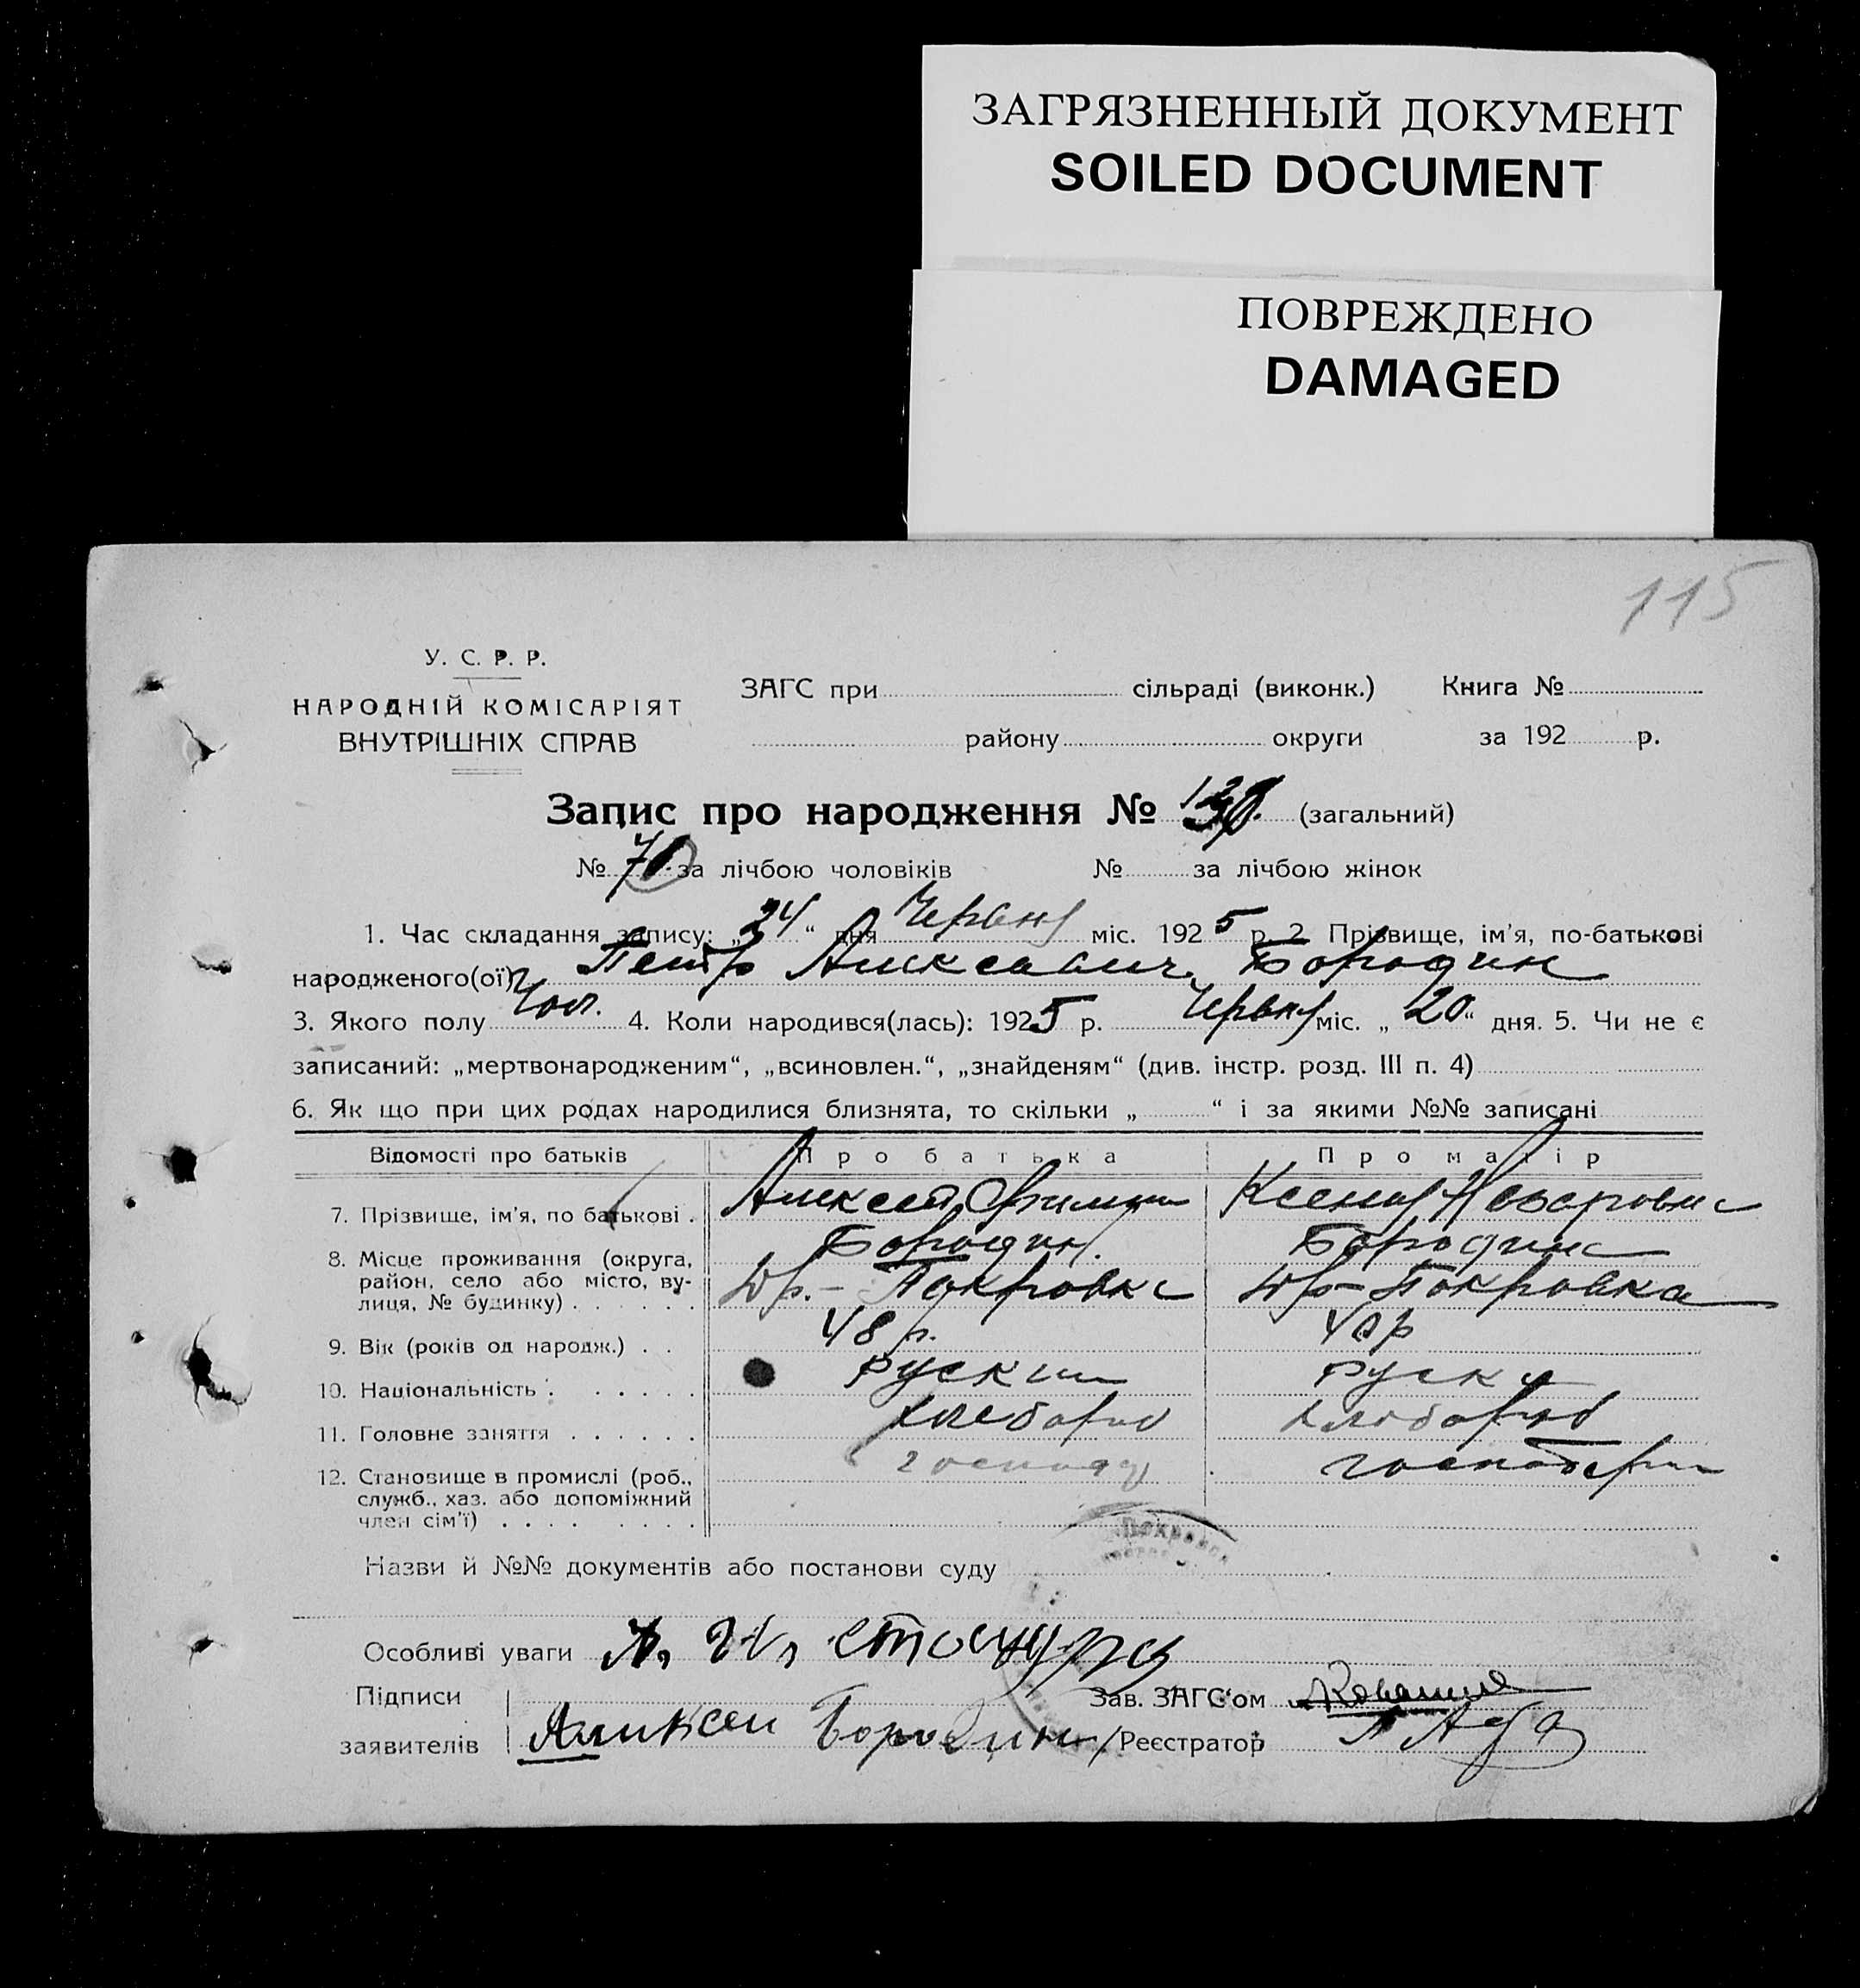 ЗАГРЯЗНЕННЫЙ ДОКУМЕНТ
SOILED DOCUMENT
ПОВРЕЖДЕНО
DAMAGED
115
У. С. Р. Р.
НАРОДНІЙ КОМІСАРІЯТ
ВНУТРІШНІХ СПРАВ
ЗАГС при сільраді (виконк.) Книга №
району округи за 192 р.
Запис про народження № (загальний)
№ 70 за лічбою чоловіків № за лічбою жінок
1. Час складання запису: „24“ дня Червня міс. 1925 р. 2 Прізвище, ім'я, по-батькові
народженого(ої) Петр Алексеевич Бородин
3. Якого полу Чол. 4. Коли народився(лась): 1925 р. Червня міс. „20“ дня. 5. Чи не є
записаний: „мертвонародженим“, „всиновлен.“, „знайденям“ (див. інстр. розд. III п. 4)
6. Як що при цих родах народилися близнята, то скільки „ “ і за якими №№ записані
Відомості про батьків Про батька Про матір
7. Прізвище, ім'я, по батькові . Алексей Ксения Назаровна
Бородин. Бородина
8. Місце проживання (округа,
район, село або місто, ву-
лиця, № будинку) . . . . . . Покровка Покровка
9. Вік (років од народж.) . . 48 р. 40 р
10. Національність . . . . . . Руский Руска
11. Головне заняття . . . . . .
12. Становище в промислі (роб.,
служб., хаз. або допоміжний
член сім'ї) . . . . . . . .
Назви й №№ документів або постанови суду
Особливі уваги
Підписи
заявителів Аликсей Бородин
Зав. ЗАГС'ом
Реєстратор